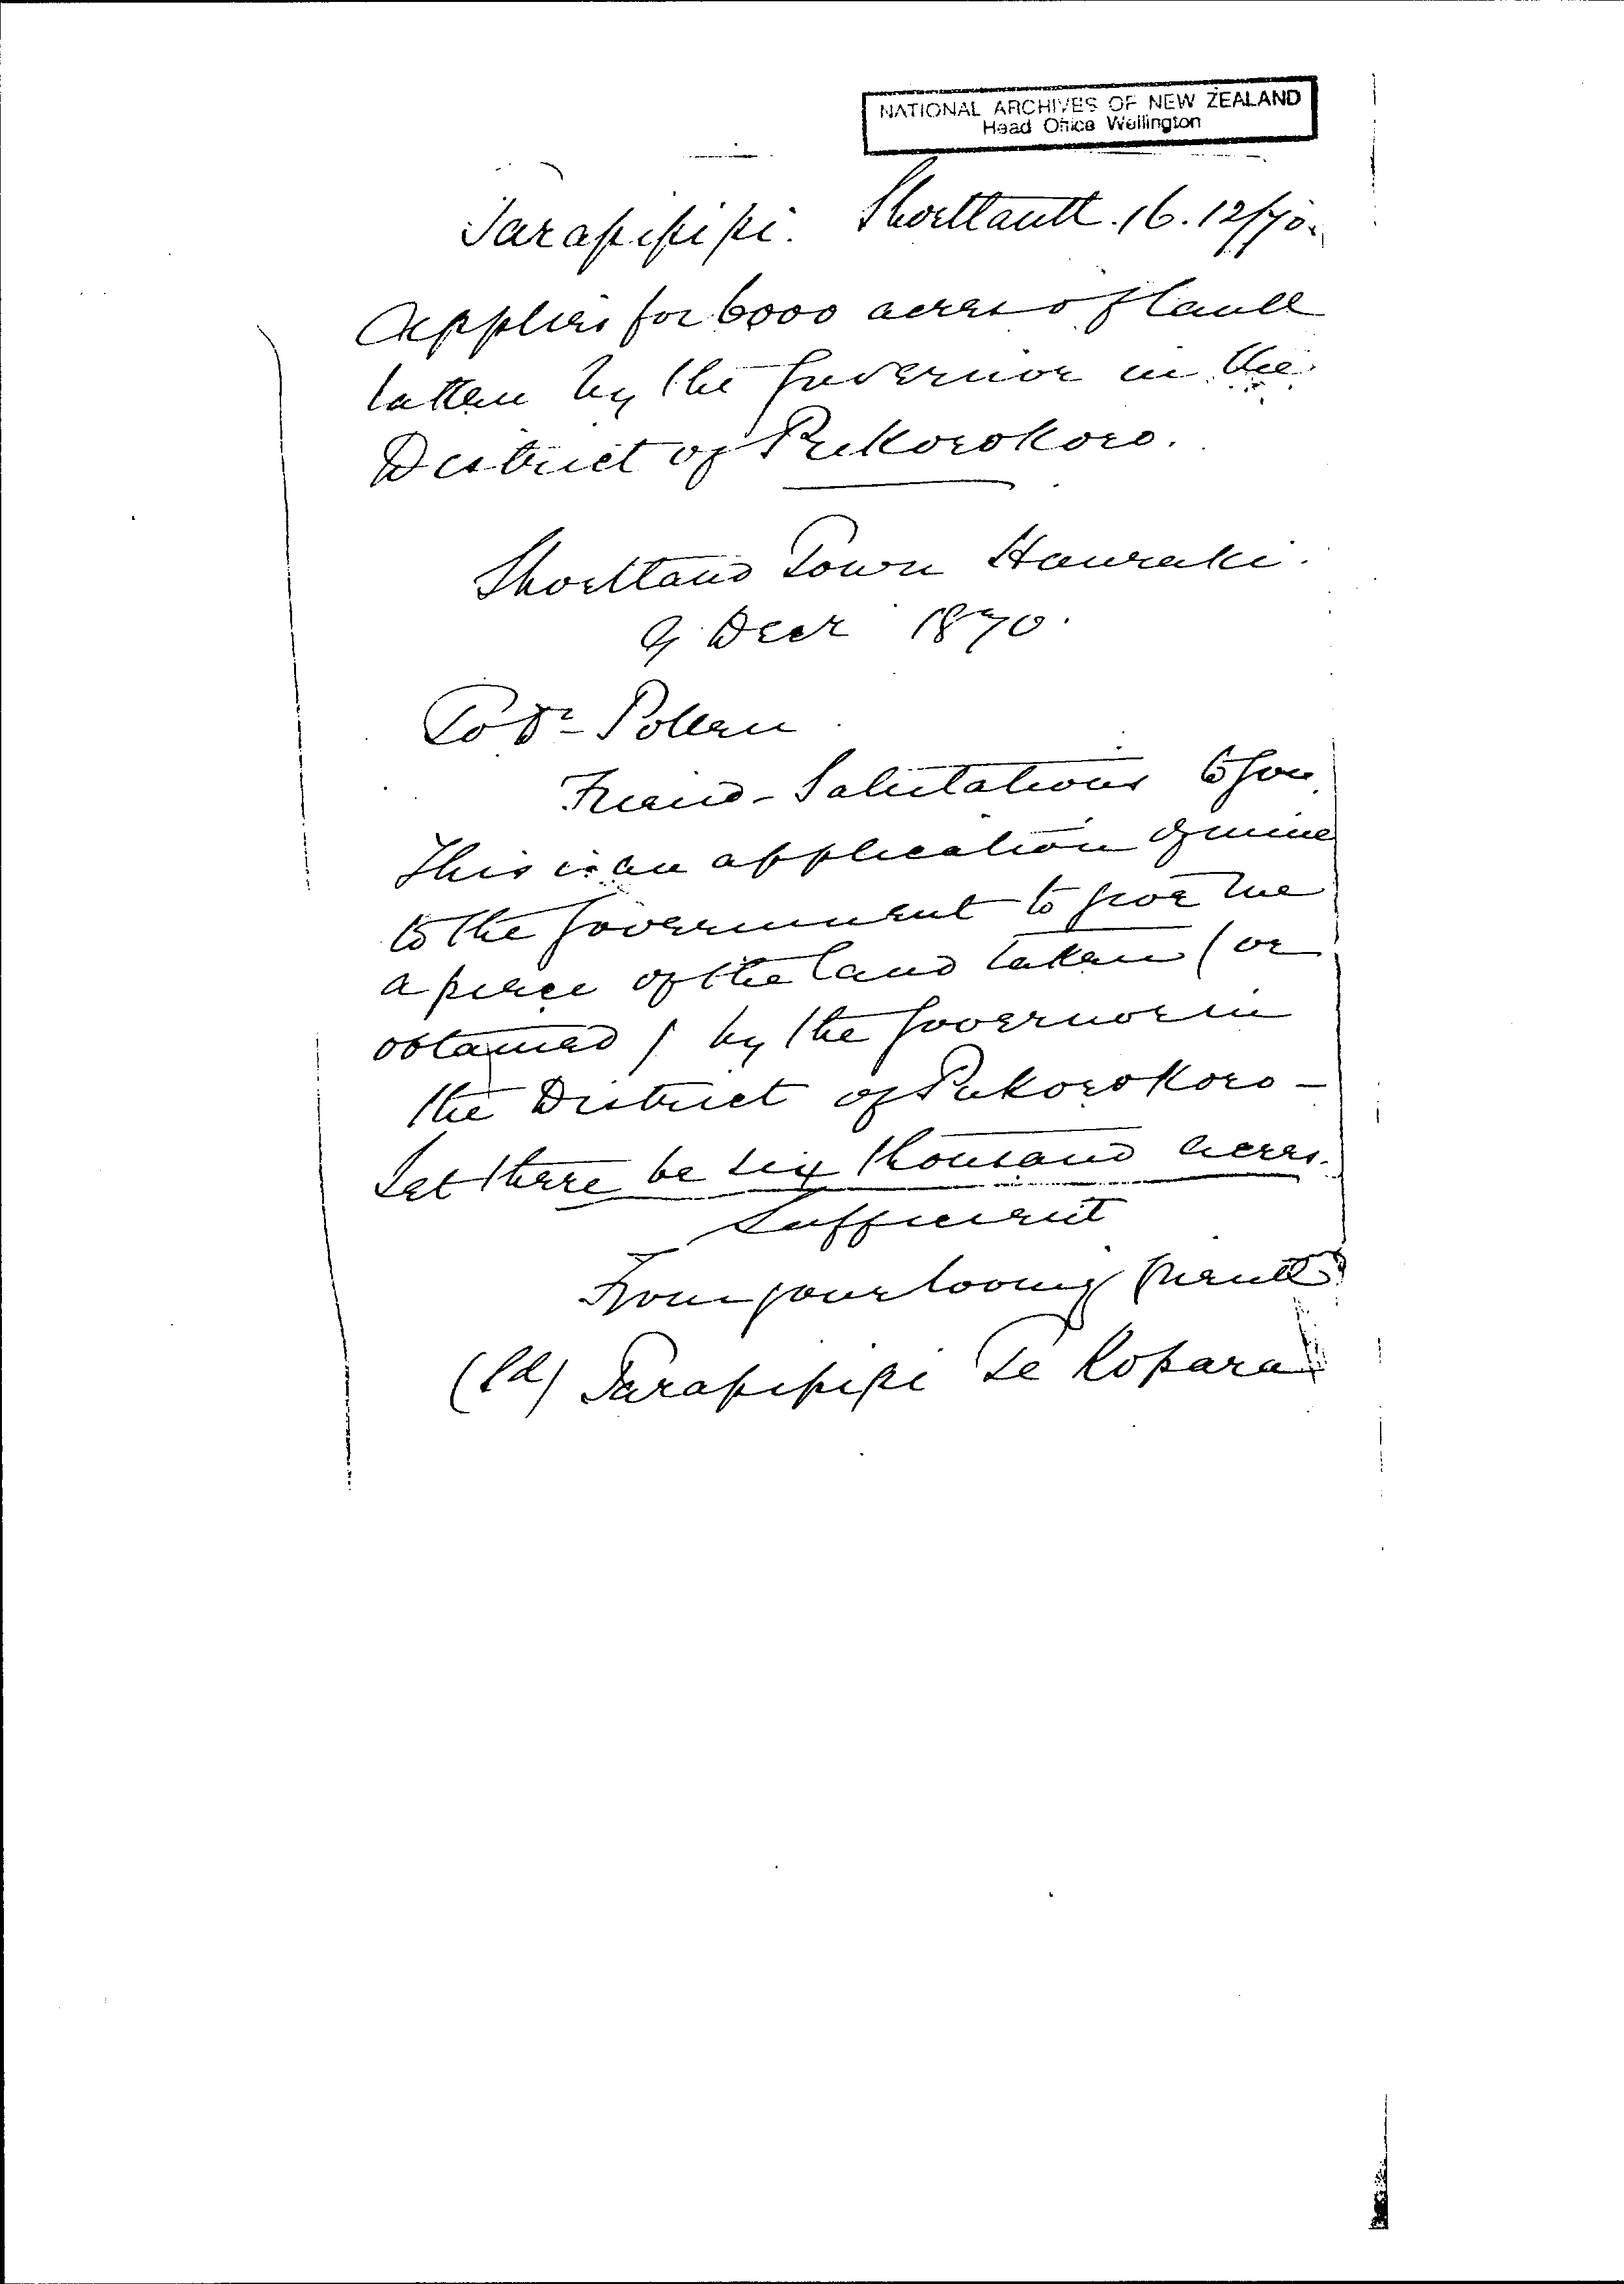 NATIONAL ARCHIVES OF NEW ZEALAND
Head Office Wellington
Tarapipipi. Shortland. 16.12/70.
Applies for 6000 acres of land
taken by the Governor in the
District of Pukorokoro.
Shortland Town Hauraki.
9 Decr 1870.
To Dr Pollen
Friend - Salutations to you.
This is an application of mine
to the Government to give me
a piece of the land taken (or
obtained) by the Governor in
the District of Pukorokoro -
Let there be six thousand acres.
Sufficient
From your loving friend
(Sd) Tarapipipi Te Kopara